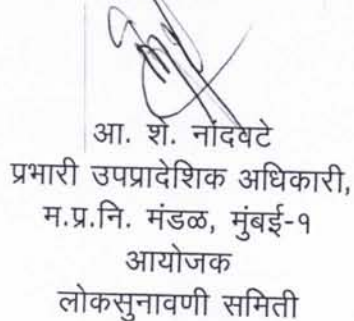 आ. शे. नांदवटे
प्रभारी उपप्रादेशिक अधिकारी,
म.प्र.नि. मंडळ, मुंबई-१
आयोजक
लोकसुनावणी समिती